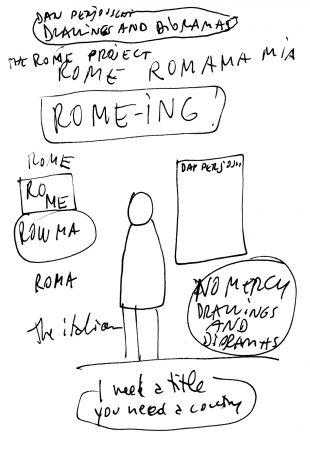 DAN PERJOVSCHI
DRAWINGS AND DIORAMAS
THE ROME PROJECT
ROME ROMAMA MIA
ROME-ING!
ROME
RO
ME
ROWMA
ROMA
The italian
DAN PERJOVSCHI
NO MERCY
DRAWINGS
AND
DIORAMAS
I need a title
you need a country